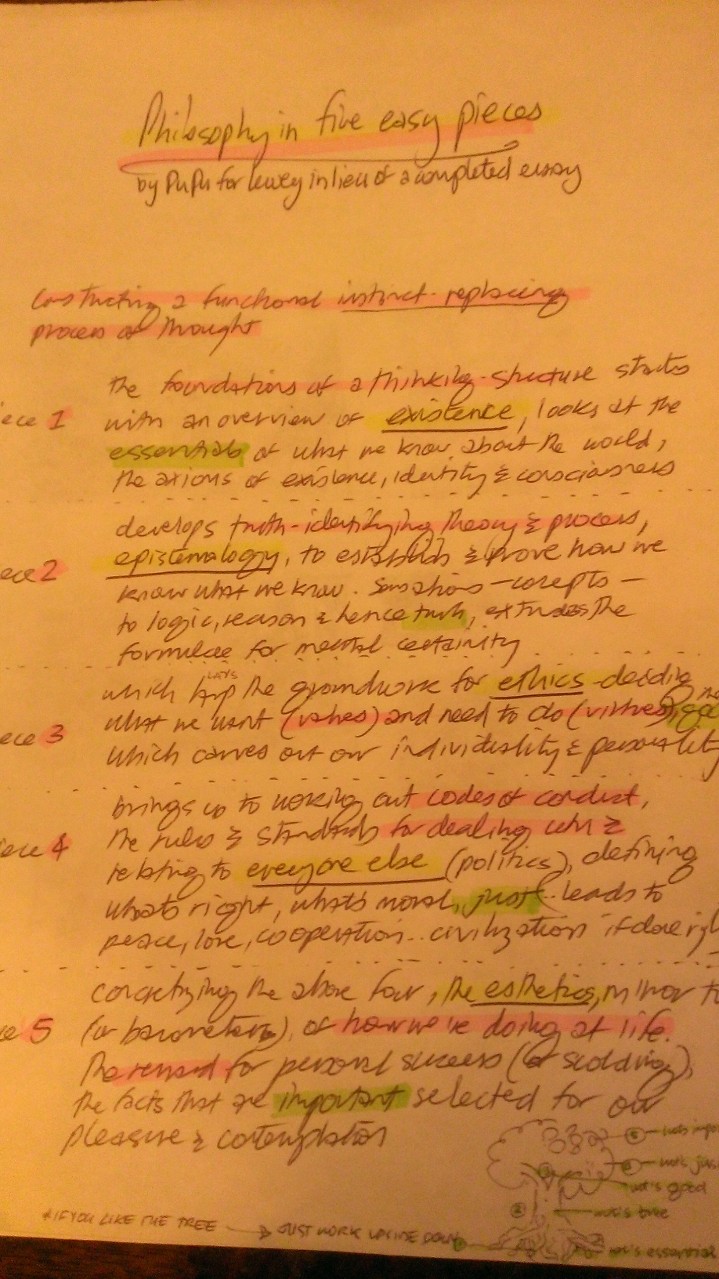 Philosophy in five easy pieces
by PuPu for lewey in lieu of a completed essay
Constructing a functional instinct-replacing
process of thought
the foundations of a thinking-structure starts
ece 1 with an overview of existence, looks at the
essentials of what we know about the world,
the axioms of existence, identity & consciousness
develops truth-identifying theory & process,
ece 2 epistemology, to establish & prove how we
know what we know. Sensations – concepts –
to logic, reason & hence truth, the
formulae for mental certainty
which LAYS the groundwork for ethics - deciding
ece 3 what we want (values) and need to do (virtues)
which carves out our individuality & personality
brings us to working out codes of conduct,
ece 4 the rules & standards for dealing with &
relating to everyone else (politics), defining
what's right, what's moral, just. leads to
peace, love, cooperation.. civilization if done
concretizing the above four, the esthetics, mirror
e 5 (or barometer), of how we're doing at life.
The reward for personal success (or scolding),
the facts that are important selected for our
pleasure & contemplation
good
true
essential
*IF YOU LIKE THE TREE → JUST WORK UPSIDE DOWN